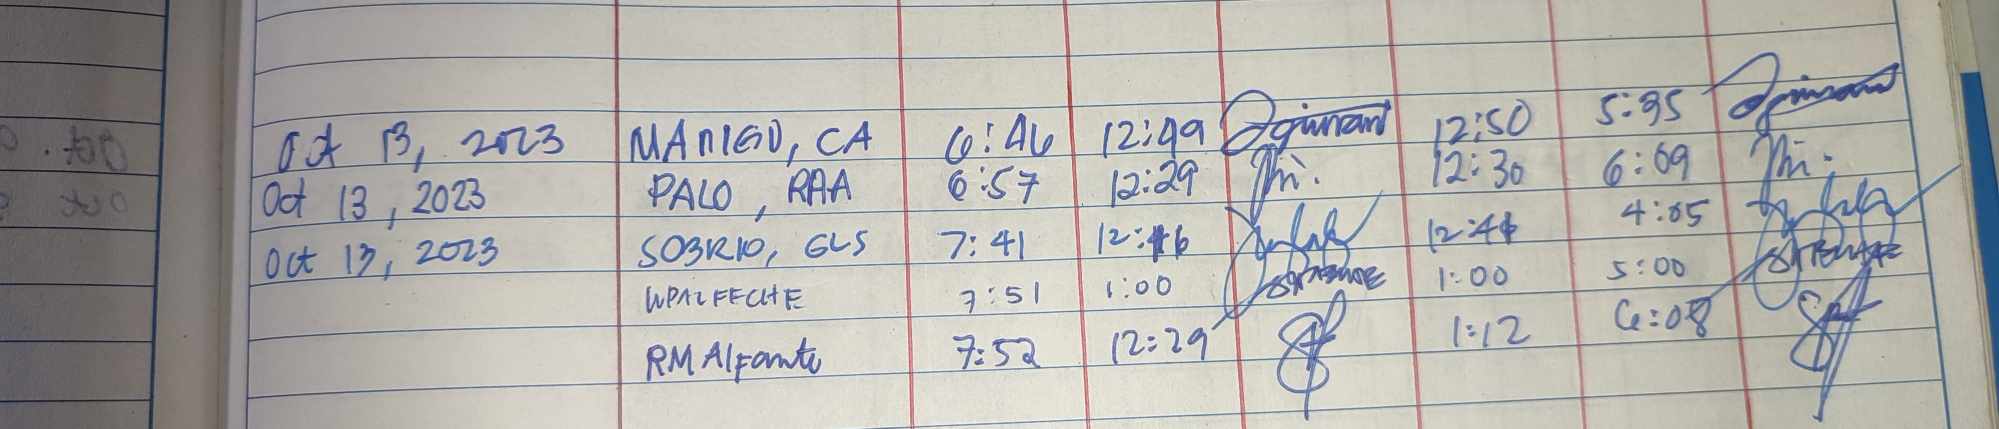 Oct 13, 2023 MANIGO, CA 6:46 12:49 12:50 5:35
Oct 13, 2023 PALO, RAA 6:57 12:29 12:30 6:09
Oct 13, 2023 SOBRIO, GLS 7:41 12:46 4:05
WPALFECHE 7:51 1:00 1:00 5:00
RM Alfante 7:52 12:29 1:12 6:08